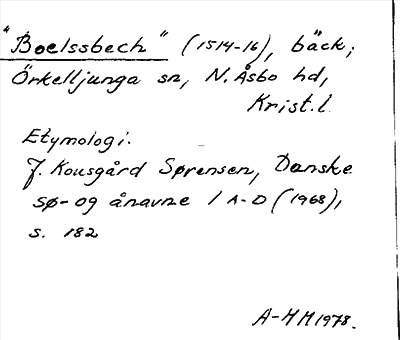 "Boelssbech" (1514-16), bäck;
Örkelljunga sn, N. Åsbo hd,
Krist.l.
Etymologi.
J. Kousgård Sørensen, Danske
sø- og ånavne 1 A-D (1968),
s. 182
A-M M 1978.